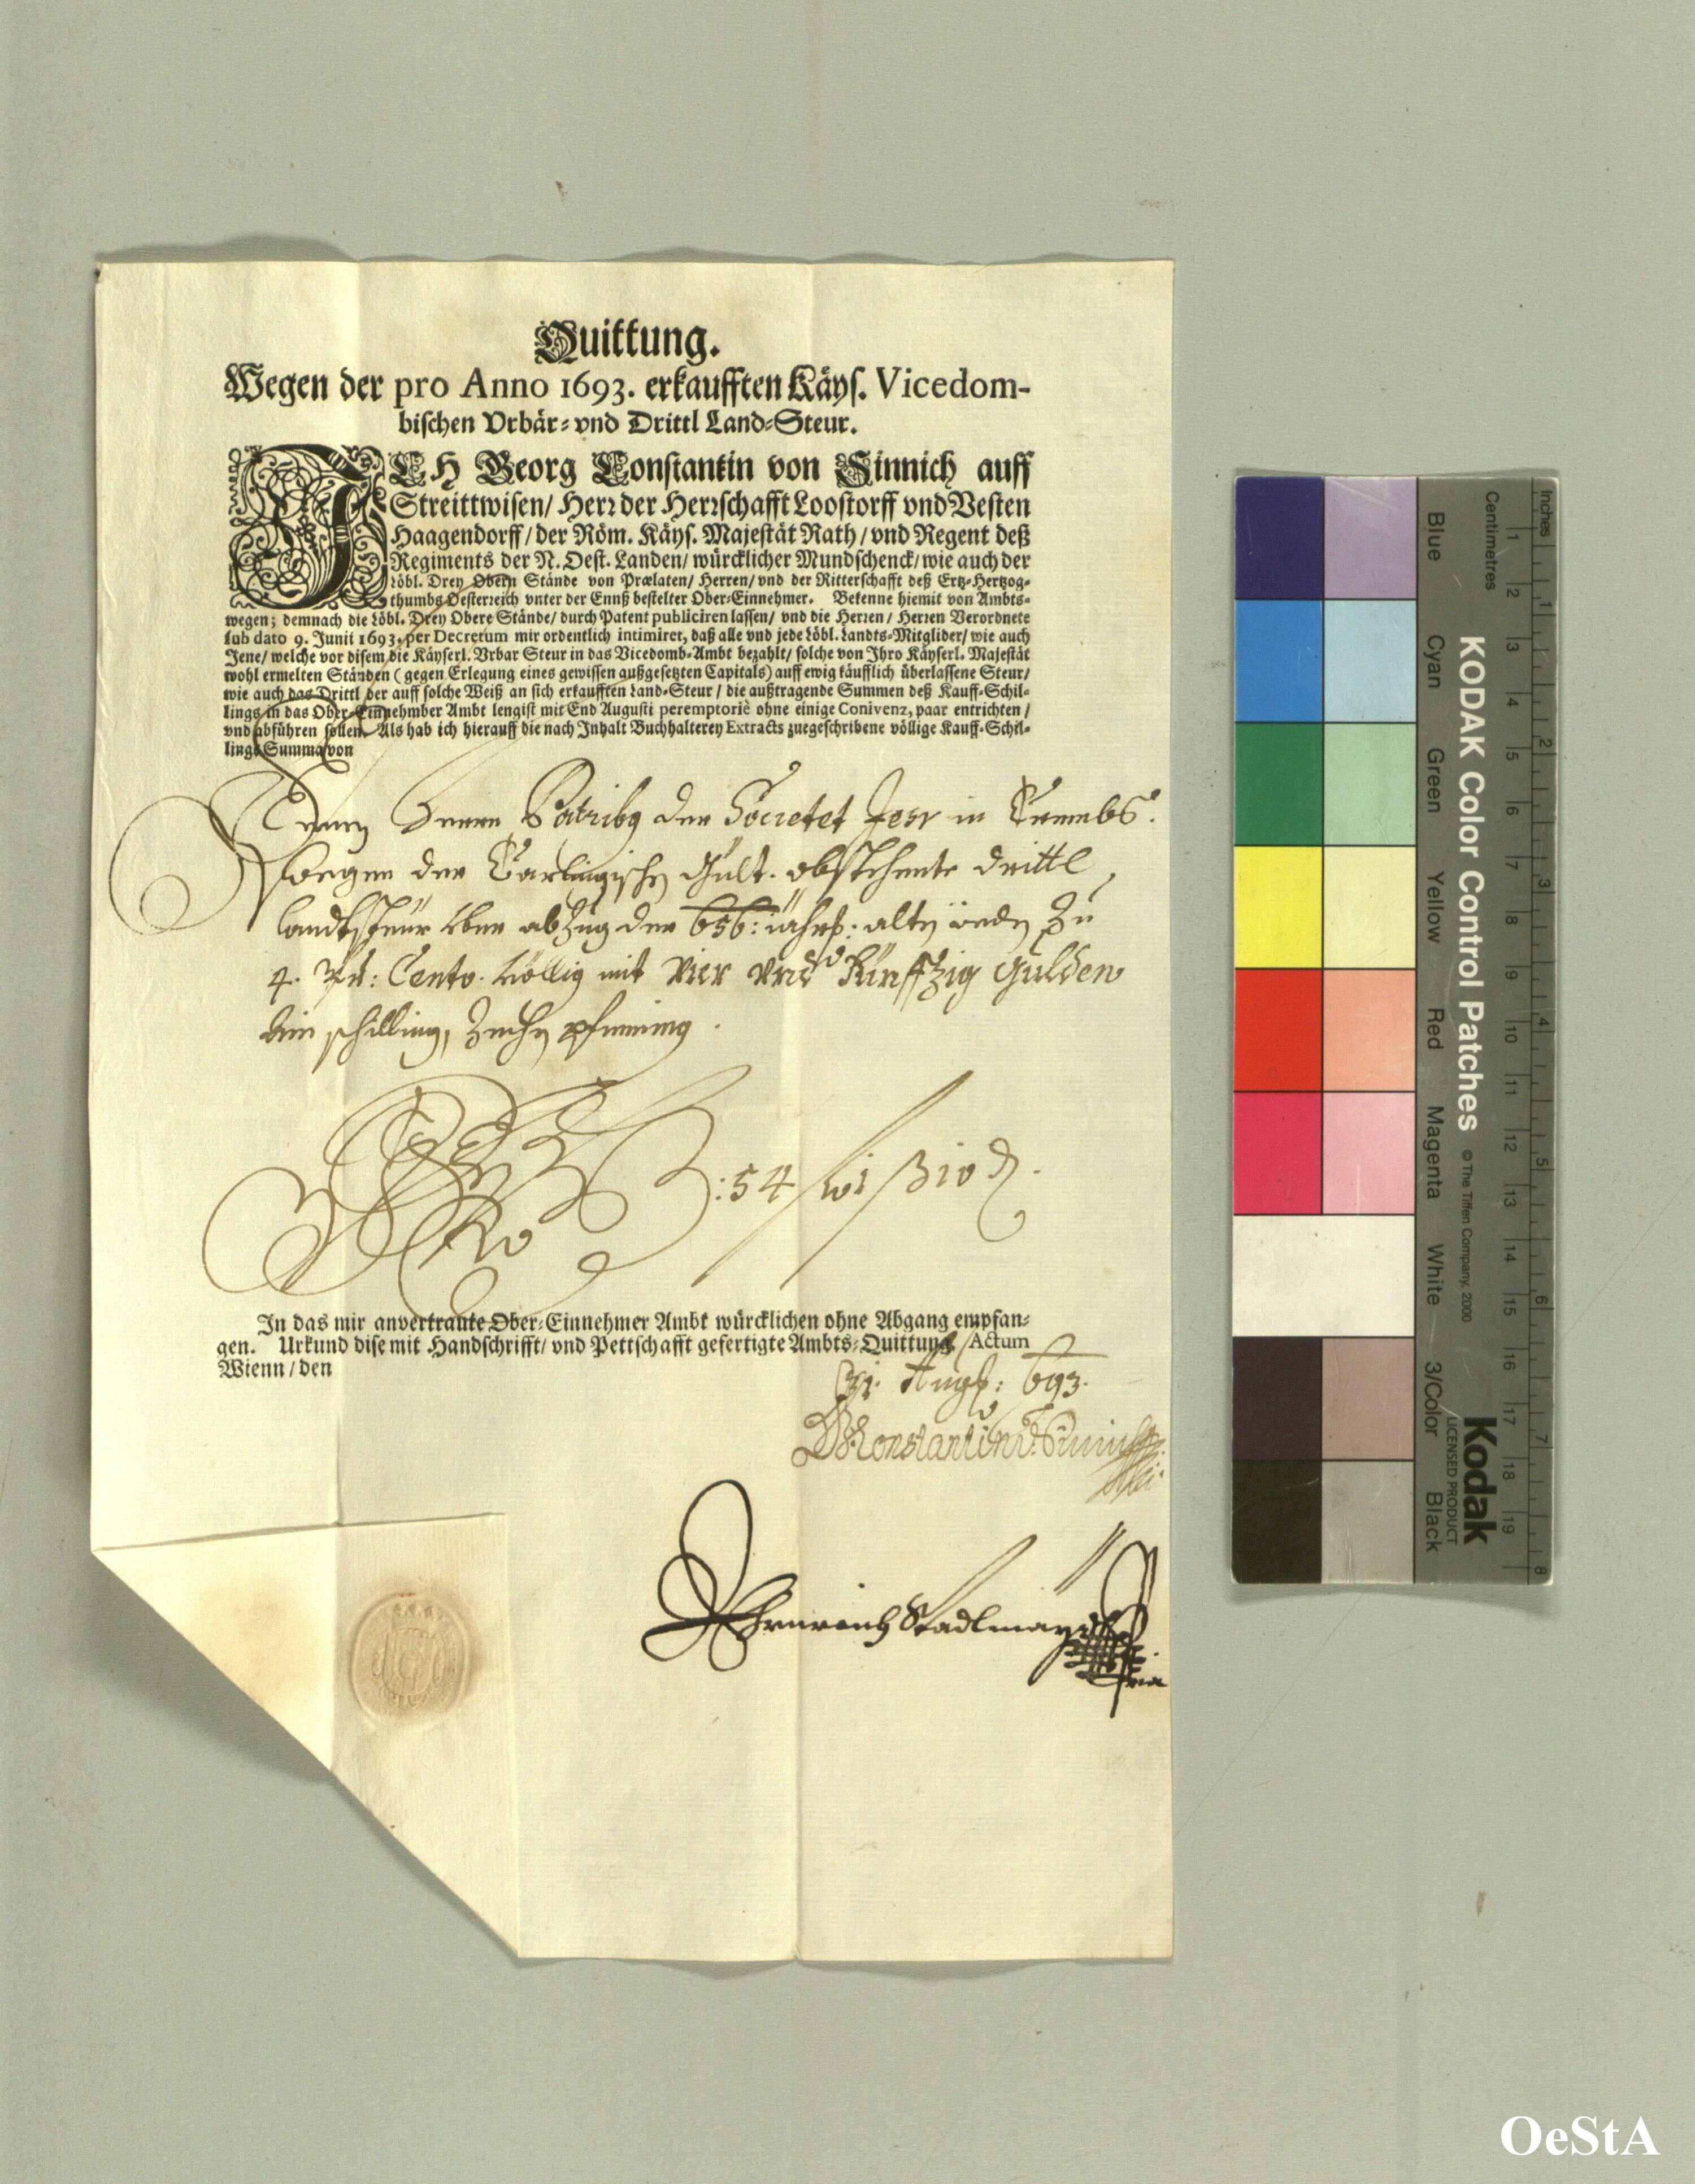 Quittung.
Wegen der pro Anno 1693. erkaufften Käys. Vicedom-
bischen Vrbär- vnd Drittl Land-Steur.
ICH Georg Constantin von Sinnich auff
Streittwisen/ Herr der Herrschafft Loostorff vnd Vesten
Haagendorff/ der Röm. Käys. Majestät Rath/ vnd Regent deß
Regiments der N. Oest. Landen/ würcklicher Mundschenck/ wie auch der
löbl. Drey Obern Stände von Prælaten/ Herren/ vnd der Ritterschafft deß Ertz-Hertzog-
thumbs Oesterreich vnter der Ennß bestelter Ober-Einnehmer. Bekenne hiemit von Ambts-
wegen; demnach die Löbl. Drey Obere Stände/ durch Patent publiciren lassen/ vnd die Herren/ Herren Verordnete
sub dato 9. Junii 1693. per Decretum mir ordentlich intimiret, daß alle vnd jede Löbl. Landts-Mitglider/ wie auch
Jene/ welche vor disem die Käyserl. Vrbar Steur in das Vicedomb-Ambt bezahlt/ solche von Ihro Käyserl. Majestät
wohl ermelten Ständen (gegen Erlegung eines gewissen außgesetzten Capitals) auff ewig käufflich überlassene Steur/
wie auch das Drittl der auff solche Weiß an sich erkaufften Land-Steur/ die außtragende Summen deß Kauff-Schil-
lings in das Ober-Einnehmber Ambt lengist mit End Augusti peremptoriè ohne einige Conivenz, paar entrichten/
vnd abführen sollen. Als hab ich hierauff die nach Inhalt Buchhalterey Extracts zuegeschribene völlige Kauff-Schil-
lings Summa von
Herren Patribus der Societet Jesu in Crembs.
wegen der Gült. obstehente drittl
landtsteür yber abzug der 656: alten zu
4. Pr: Cento. völlig mit Vier vnd Fünffzig Gulden
Ein schilling, Zechen pfenning.
:54 f 1 ß 10 ₰.
In das mir anvertraute Ober-Einnehmer Ambt würcklichen ohne Abgang empfan-
gen. Urkund dise mit Handschrifft/ vnd Pettschafft gefertigte Ambts-Quittung/ Actum
Wienn/ den
31. Aug: 693.
GConstantin v. Sinnich
Heinrich Stadlmayr
KODAK Color Control Patches
© The Tiffen Company, 2000
Kodak
LICENSED PRODUCT
Inches
1 2 3 4 5 6 7 8
Centimetres
1 2 3 4 5 6 7 8 9 10 11 12 13 14 15 16 17 18 19
Blue
Cyan
Green
Yellow
Red
Magenta
White
3/Color
Black
OeStA